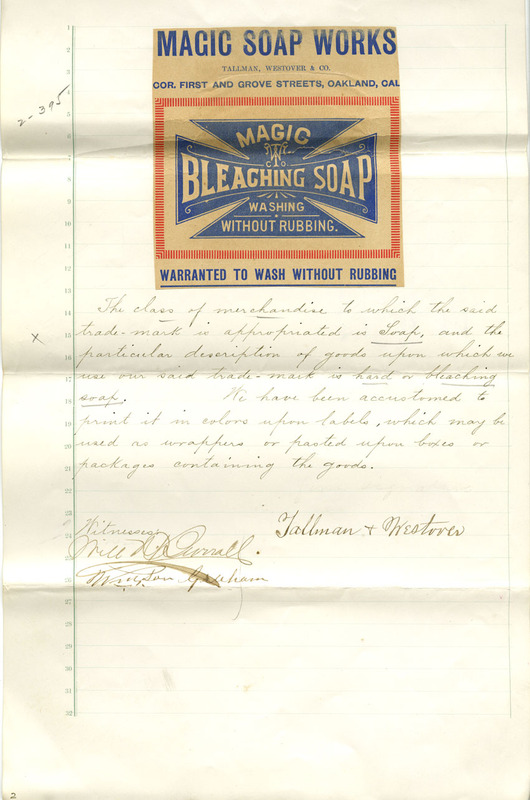 MAGIC SOAP WORKS
TALLMAN, WESTOVER & CO.
COR. FIRST AND GROVE STREETS, OAKLAND, CAL
MAGIC
T W
& CO.
BLEACHING SOAP
WASHING
WITHOUT RUBBING.
WARRANTED TO WASH WITHOUT RUBBING
2-395
1
2
3
4
5
6
7
8
9
10
11
12
13
14
15
16
17
18
19
20
21
22
23
24
25
26
27
28
29
30
31
32
The class of merchandise to which the said
x trade-mark is appropriated is Soap, and the
particular description of goods upon which we
use our said trade-mark is hard or bleaching
soap. We have been accustomed to
print it in colors upon labels, which may be
used as wrappers or pasted upon boxes or
packages containing the goods.
Witnesses
Tallman & Westover
Graham
2